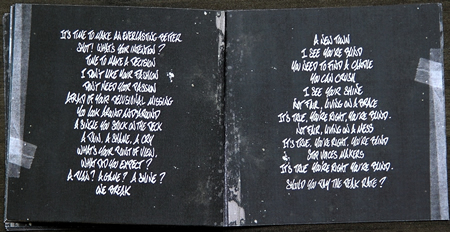 IT'S TIME TO MAKE AN EVERLASTING BETTER
SHOT! WHAT'S YOUR INTENTION?
TIME TO MAKE A DECISION
I DON'T LIKE YOUR FASHION
DON'T NEED YOUR PASSION
AFRAID OF YOUR DELUSIONAL MISSING
YOU LOOK AROUND AND AROUND
A SINGLE YOU STUCK ON THE DECK
A PAIN, A SHAME, A CRY
WHAT'S YOUR POINT OF VIEW,
WHAT DID YOU EXPECT?
A PLAN? A GAME? A SHINE?
ONE BREAK
A NEW TOWN
I SEE YOU'RE BLIND
YOU NEED TO FIND A
YOU CAN CRUSH
I SEE YOUR SHINE
NOT FAIR, LIVING ON A
IT'S TRUE, YOU'RE RIGHT, YOU'RE BLIND.
NOT FAIR, LIVING ON A MESS
IT'S TRUE, YOU'RE RIGHT, YOU'RE BLIND
OUR VOICES MAKERS
IT'S TRUE YOU'RE RIGHT YOU'RE BLIND.
SHOULD YOU PAY THE PEAK RATE?